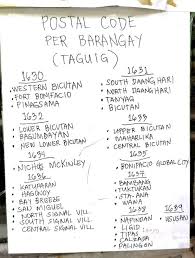 POSTAL CODE
PER BARANGAY
(TAGUIG)
1630
• WESTERN BICUTAN
• FORT BONIFACIO
• PINAGSAMA
1631
• SOUTH DAANGHARI
• NORTH DAANGHARI
• TANYAG
• BICUTAN
1632
• LOWER BICUTAN
• BAGUMBAYAN
• NEW LOWER BICUTAN
1633
• UPPER BICUTAN
• MAHARLIKA
• CENTRAL BICUTAN
1634
• MCKINLEY
1635
• BONIFACIO GLOBAL CITY
1636
• KATUPARAN
• HAGONOY
• BAY BREEZE
• SAN MIGUEL
• NORTH SIGNAL VILL.
• SOUTH SIGNAL VILL.
• CENTRAL SIGNAL VILL.
1637
• BAMBANG
• TUKTUKAN
• STA. ANA
• WAWA
1638
• NAPINDAN
• LIGID
• TIPAS
• CALZADA
• PALINGON
1639
• USUSAN